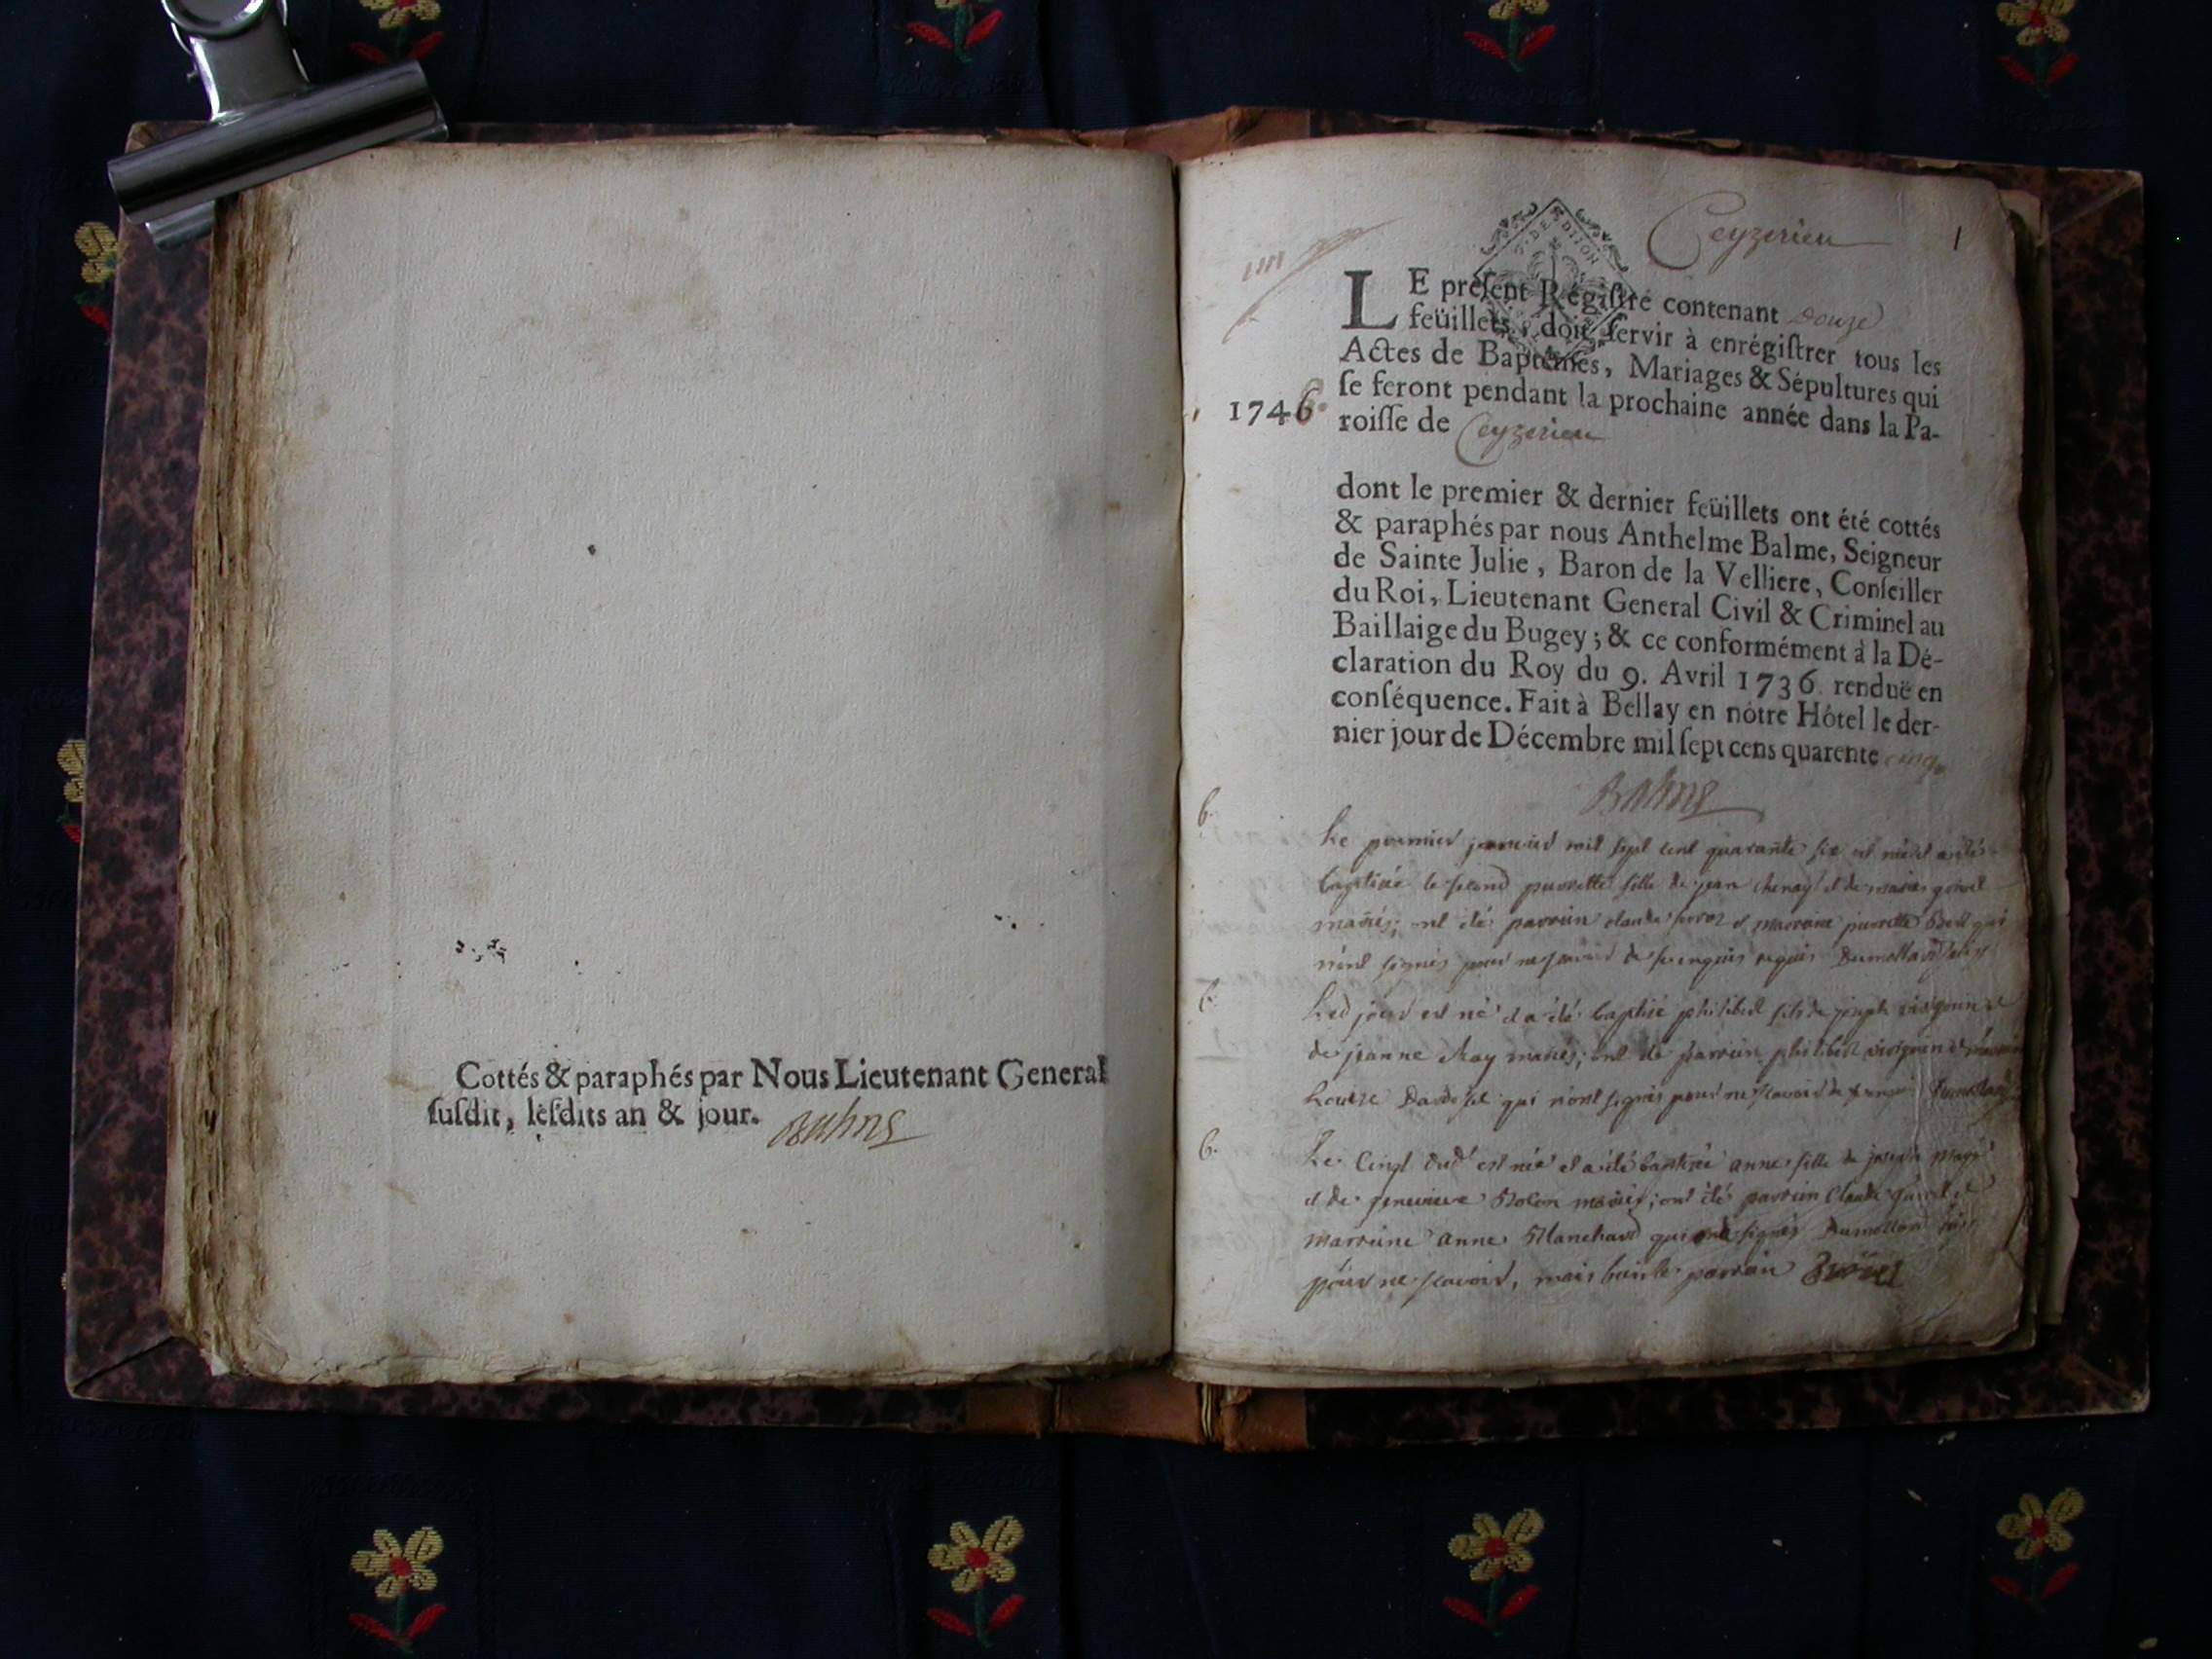 Cottés & paraphés par Nous Lieutenant General
ſuſdit, leſdits an & jour. Balme
Ceyzerieu 1
G. DE DIJON
LE préſent Régiſtre contenant Douze
feüillets, doit ſervir à enrégiſtrer tous les
Actes de Baptêmes, Mariages & Sépultures qui
ſe feront pendant la prochaine année dans la Pa-
1746. roiſſe de Ceyzerieu
dont le premier & dernier feüillets ont été cottés
& paraphés par nous Anthelme Balme, Seigneur
de Sainte Julie, Baron de la Velliere, Conſeiller
du Roi, Lieutenant General Civil & Criminel au
Baillaige du Bugey; & ce conformément à la Dé-
claration du Roy du 9. Avril 1736. renduë en
conſéquence. Fait à Bellay en nôtre Hôtel le der-
nier jour de Décembre mil ſept cens quarente cinq.
Balme
b. Le premier janvier mil sept cent quarante six est née et a été
baptisée le second pierrette fille de jean et de marie
mariés; ont été parrein claude et marreine pierrette qui
n'ont signés pour ne scavoir de ce enquis requis
b. Led jour est né et a été baptisé philibert fils de joseph et
de jeanne May mariés; ont été parrein philibert et marreine
Louise qui n'ont signés pour ne scavoir de ce
b. Le Cinq dud est née et a été baptisée anne fille de joseph
et de genevieve mariés; ont été parrein Claude et
marreine anne Blanchard qui signés
pour ne scavoir, mais parrain